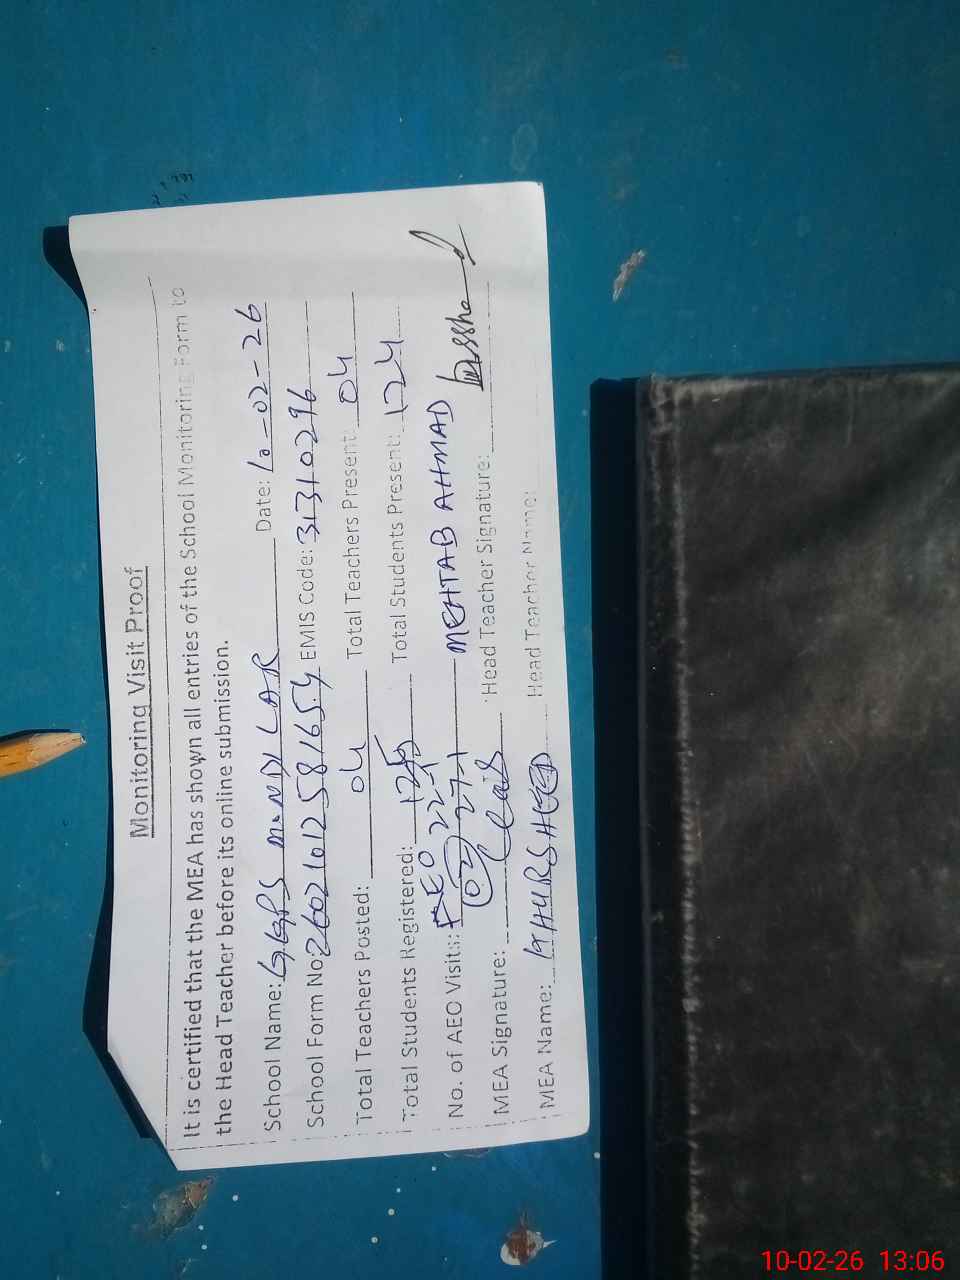 Monitoring Visit Proof
It is certified that the MEA has shown all entries of the School Monitoring Form to
the Head Teacher before its online submission.
School Name: GGPS M. NDI LAR Date: 10-02-26
School Form No: 26021012581654 EMIS Code: 31310296
Total Teachers Posted: 04 Total Teachers Present: 04
Total Students Registered: 125 Total Students Present: 124
No. of AEO Visits: 02 DEO 22-1 27-1 MEHTAB AHMAD
MEA Signature: Head Teacher Signature:
MEA Name: KHURSHEED Head Teacher Name:
10-02-26 13:06